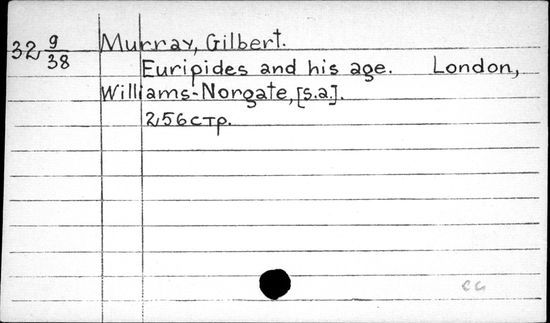 32 9/38 Murray, Gilbert.
Euripides and his age. London,
Williams-Norgate, [s.a.].
256 стр.